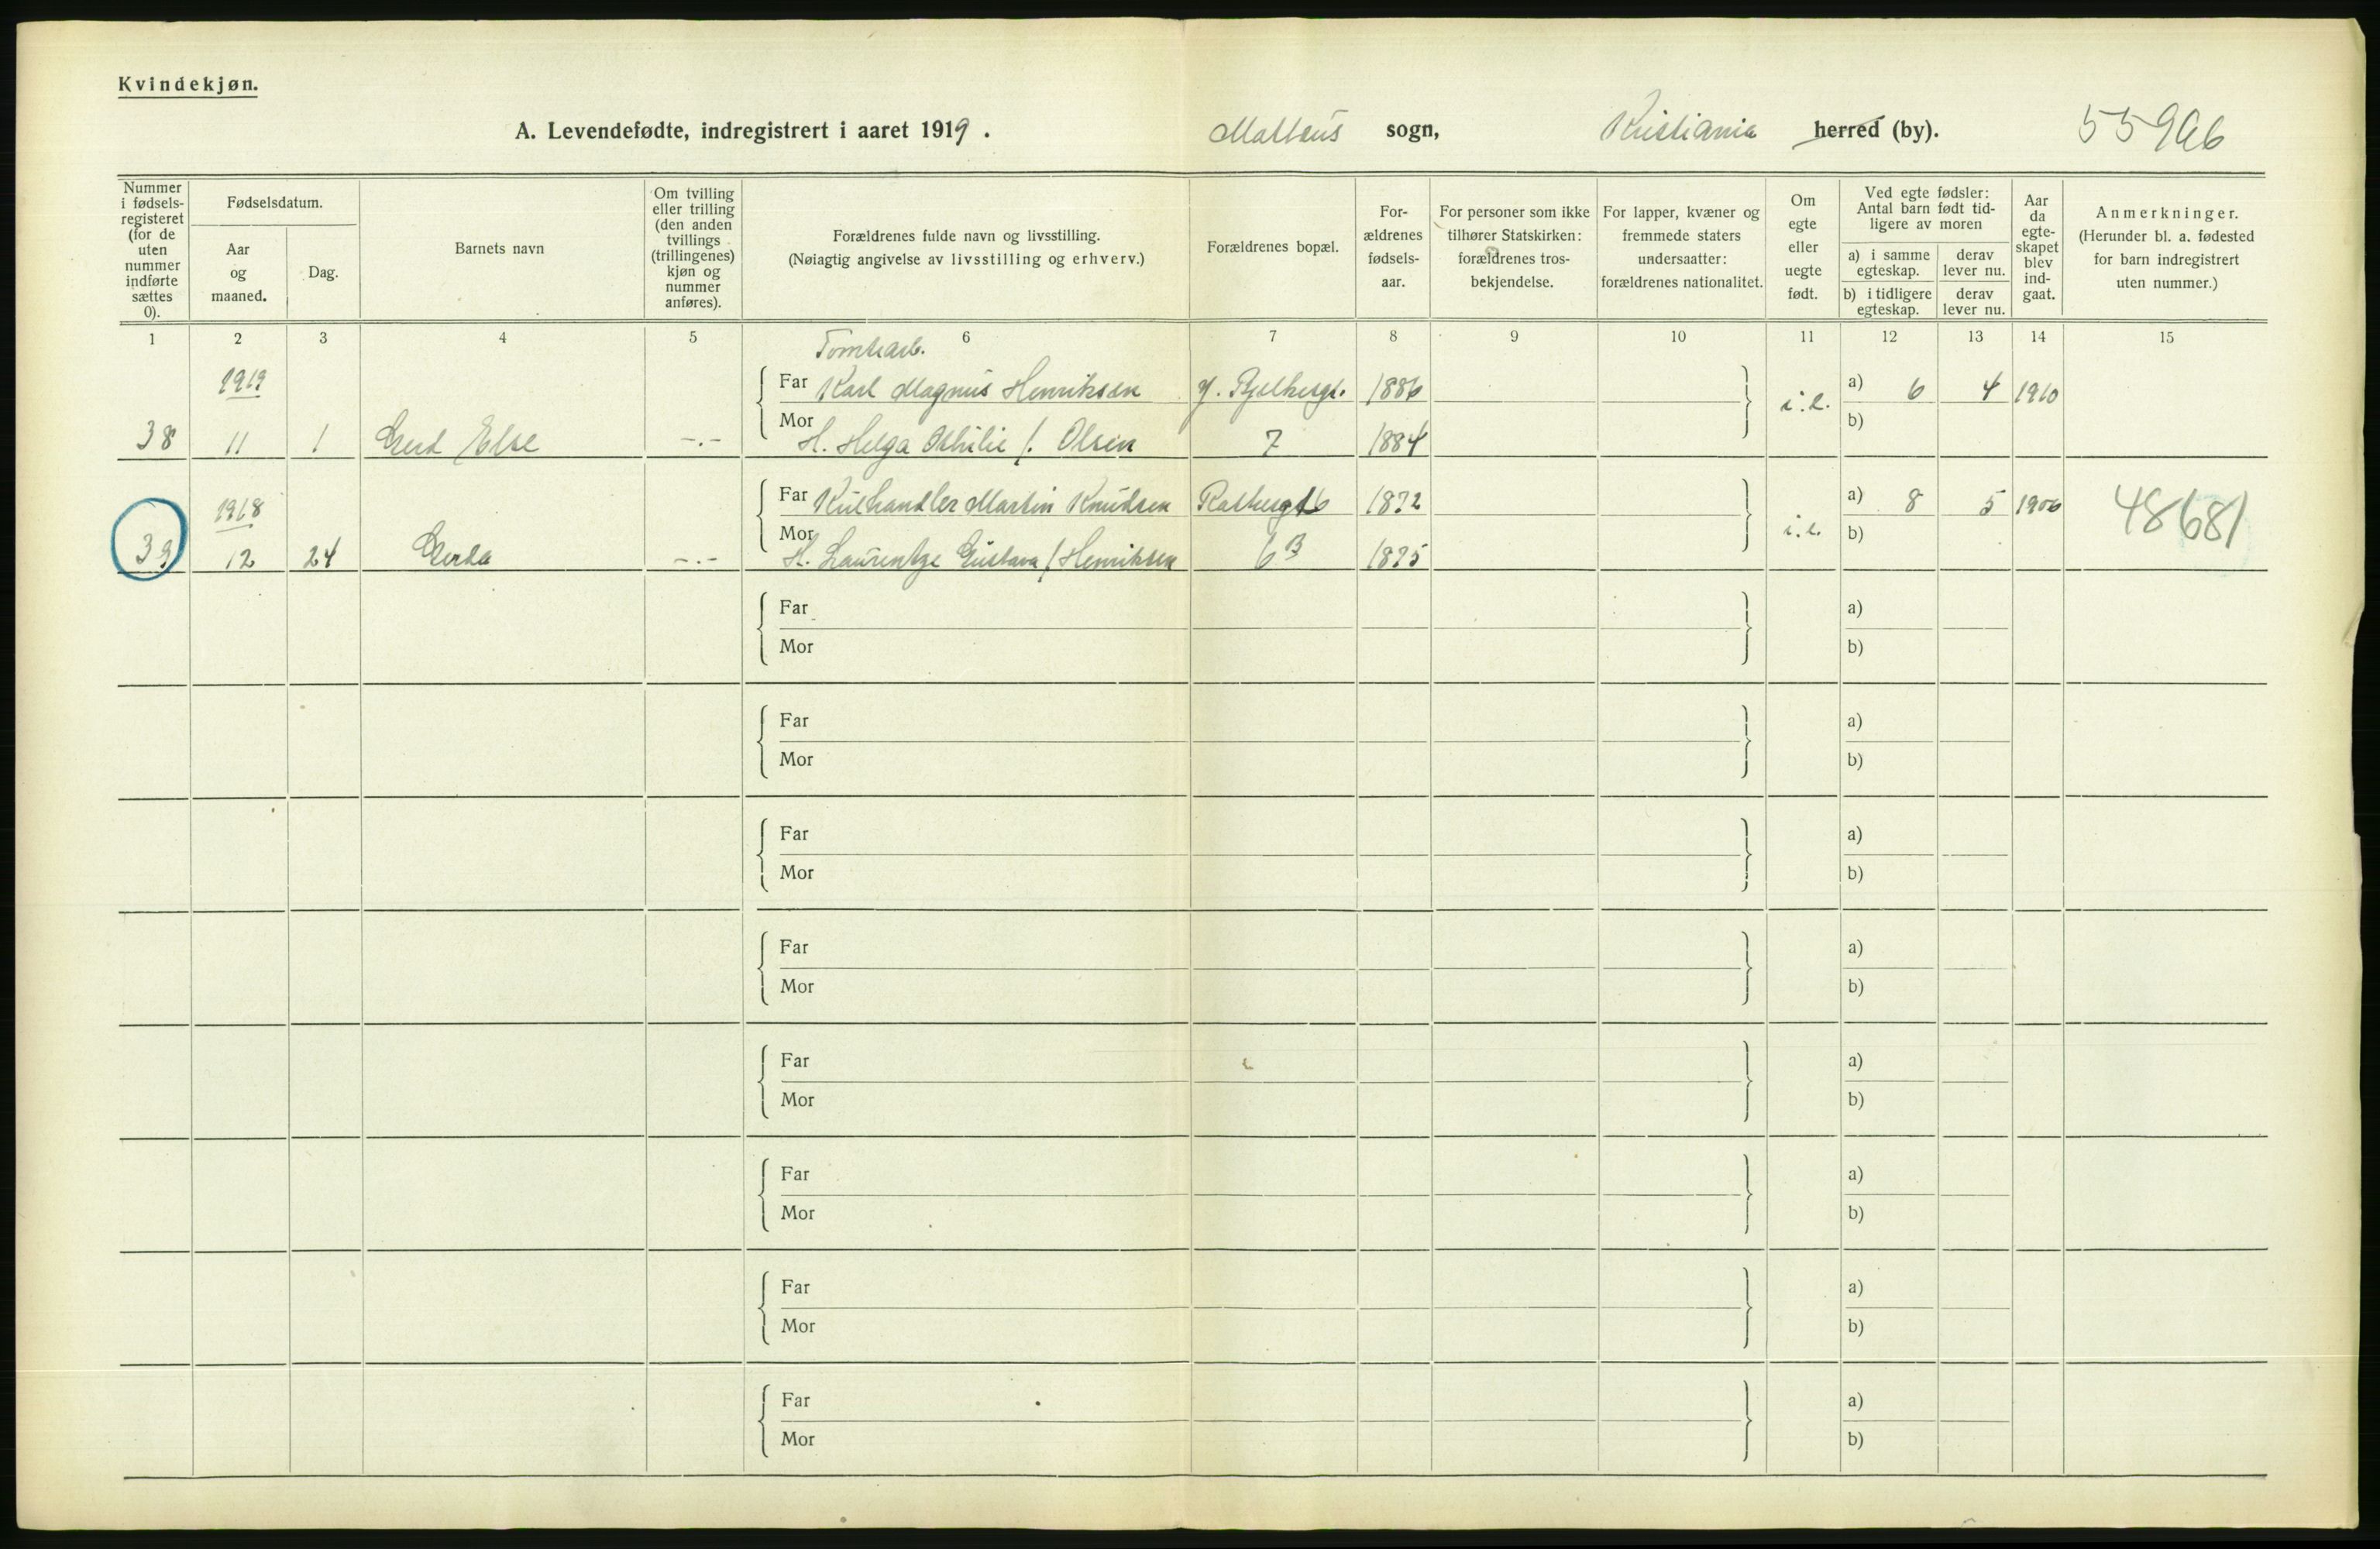 Kvindekjøn.
A. Levendefødte, indregistrert i aaret 1919. Mattæus sogn, Kristiania herred (by). 55966
Nummer i fødsels-registeret (for de uten nummer indførte sættes 0).
Fødselsdatum.
Aar og maaned.
Dag.
Barnets navn
Om tvilling eller trilling (den anden tvillings (trillingenes) kjøn og nummer anføres).
Forældrenes fulde navn og livsstilling.
(Nøiagtig angivelse av livsstilling og erhverv.)
Forældrenes bopæl.
For-ældrenes fødsels-aar.
For personer som ikke tilhører Statskirken: forældrenes tros-bekjendelse.
For lapper, kvæner og fremmede staters undersaatter: forældrenes nationalitet.
Om egte eller uegte født.
Ved egte fødsler: Antal barn født tid-ligere av moren
a) i samme egteskap.
derav lever nu.
b) i tidligere egteskap.
derav lever nu.
Aar da egte-skapet blev ind-gaat.
Anmerkninger.
(Herunder bl. a. fødested for barn indregistrert uten nummer.)
1 2 3 4 5 6 7 8 9 10 11 12 13 14 15
Tomtearb.
1919 Far Karl Magnus Henriksen 1886 i.e. a) 6 4 1910
38 11 1 Gerd Else -.- Mor H. Helga Othilie f. Olsen 7 1884 b)
1918 Far Kulhandler Martin Knudsen 1872 i.e. a) 8 5 1906 48681
39 12 24 Gerda -.- Mor H. Laurentze Gustava f. Henriksen 6B 1875 b)
Far a)
Mor b)
Far a)
Mor b)
Far a)
Mor b)
Far a)
Mor b)
Far a)
Mor b)
Far a)
Mor b)
Far a)
Mor b)
Far a)
Mor b)